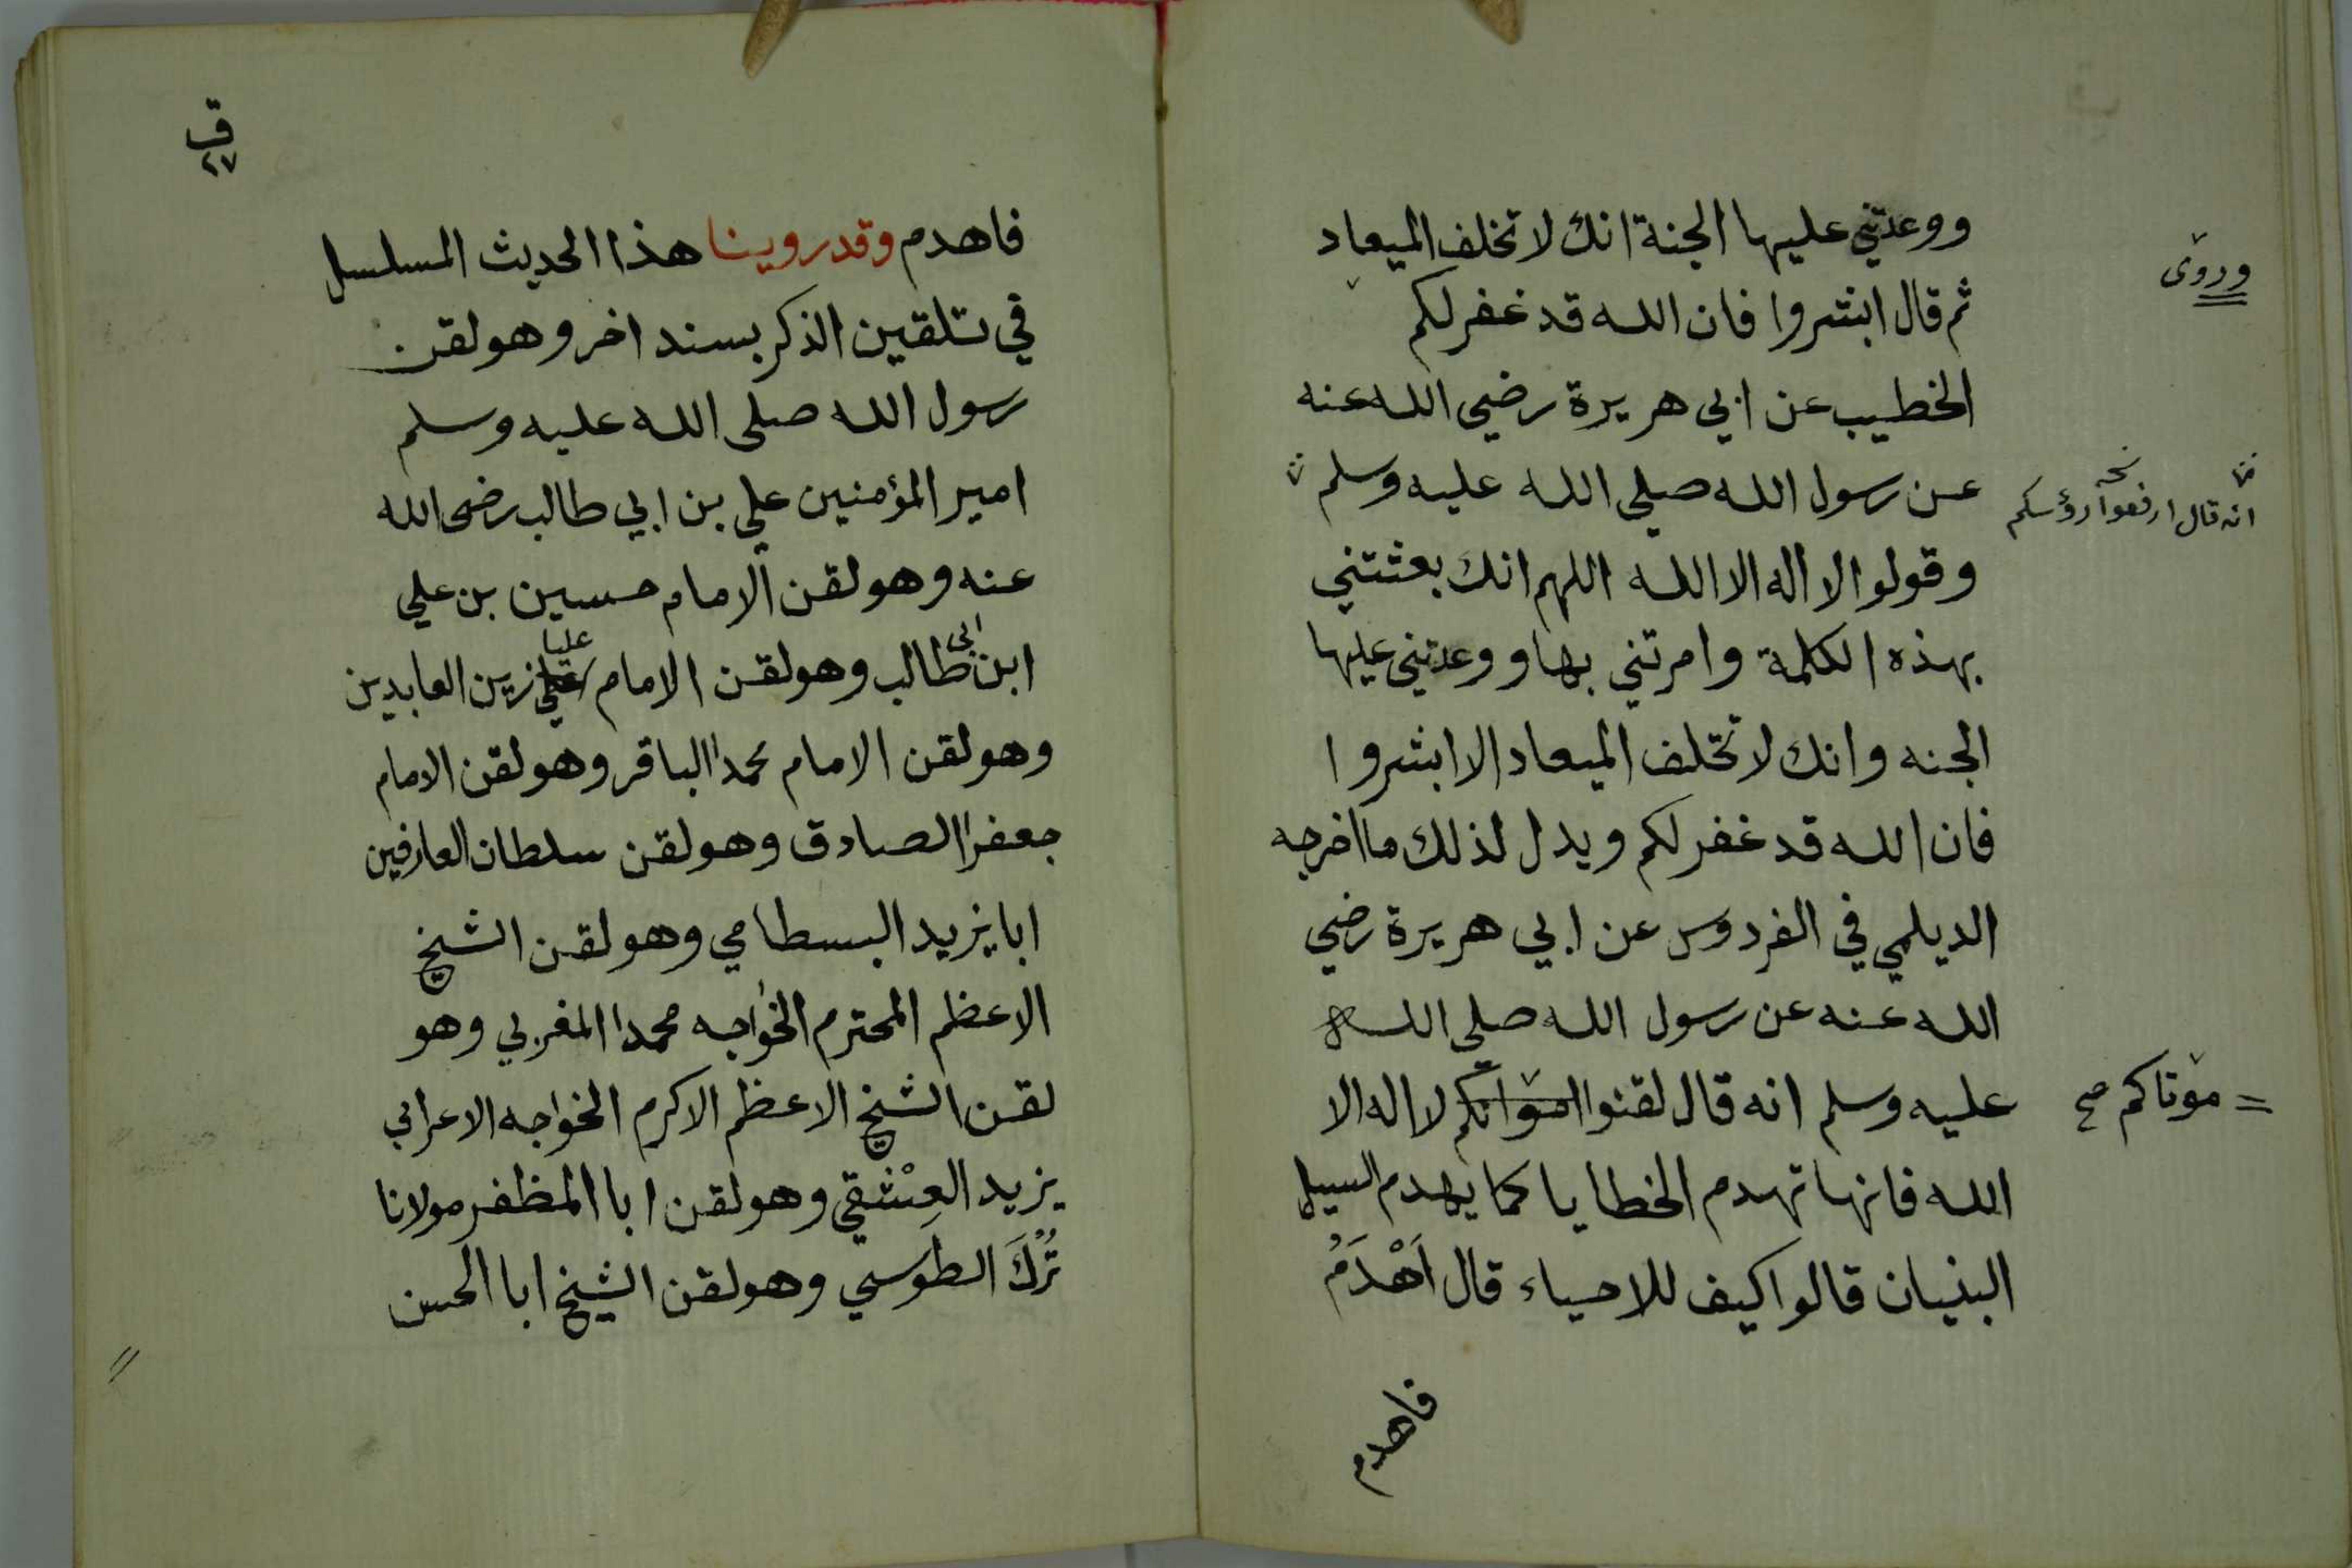 ووعدتني عليها الجنة انك لا تخلف الميعاد
وروى
ثم قال ابشروا فان الله قد غفر لكم
الخطيب عن ابي هريرة رضي الله عنه
عن رسول الله صلى الله عليه وسلم
انه قال ارفعوا رؤسكم
وقولوا لا اله الا الله اللهم انك بعثتني
بهذه الكلمة وامرتني بها ووعدتني عليها
الجنه وانك لا تخلف الميعاد الا ابشروا
فان الله قد غفر لكم ويدل لذلك ما اخرجه
الديلمي في الفردوس عن ابي هريرة رضي
الله عنه عن رسول الله صلى الله
عليه وسلم انه قال لقنوا لا اله الا
موتاكم صح
الله فانها تهدم الخطايا كما يهدم السيل
البنيان قالوا كيف للاحياء قال اَهْدَمُ
فاهدم
ق
٢٧
فاهدم وقد روينا هذا الحديث المسلسل
في تلقين الذكر بسند اخر وهو لقن
رسول الله صلى الله عليه وسلم
امير المؤمنين علي بن ابي طالب رضى الله
عنه وهو لقن الامام حسين بن علي
ابن ابى طالب وهو لقن الامام عليا زين العابدين
وهو لقن الامام محمدا الباقر وهو لقن الامام
جعفرا الصادق وهو لقن سلطان العارفين
ابا يزيد البسطامي وهو لقن الشيخ
الاعظم المحترم الخواجه محمدا المغربي وهو
لقن الشيخ الاعظم الاكرم الخواجه الاعرابي
يزيد العِشْقي وهو لقن ابا المظفر مولانا
تُرْكَ الطوسي وهو لقن الشيخ ابا الحسن